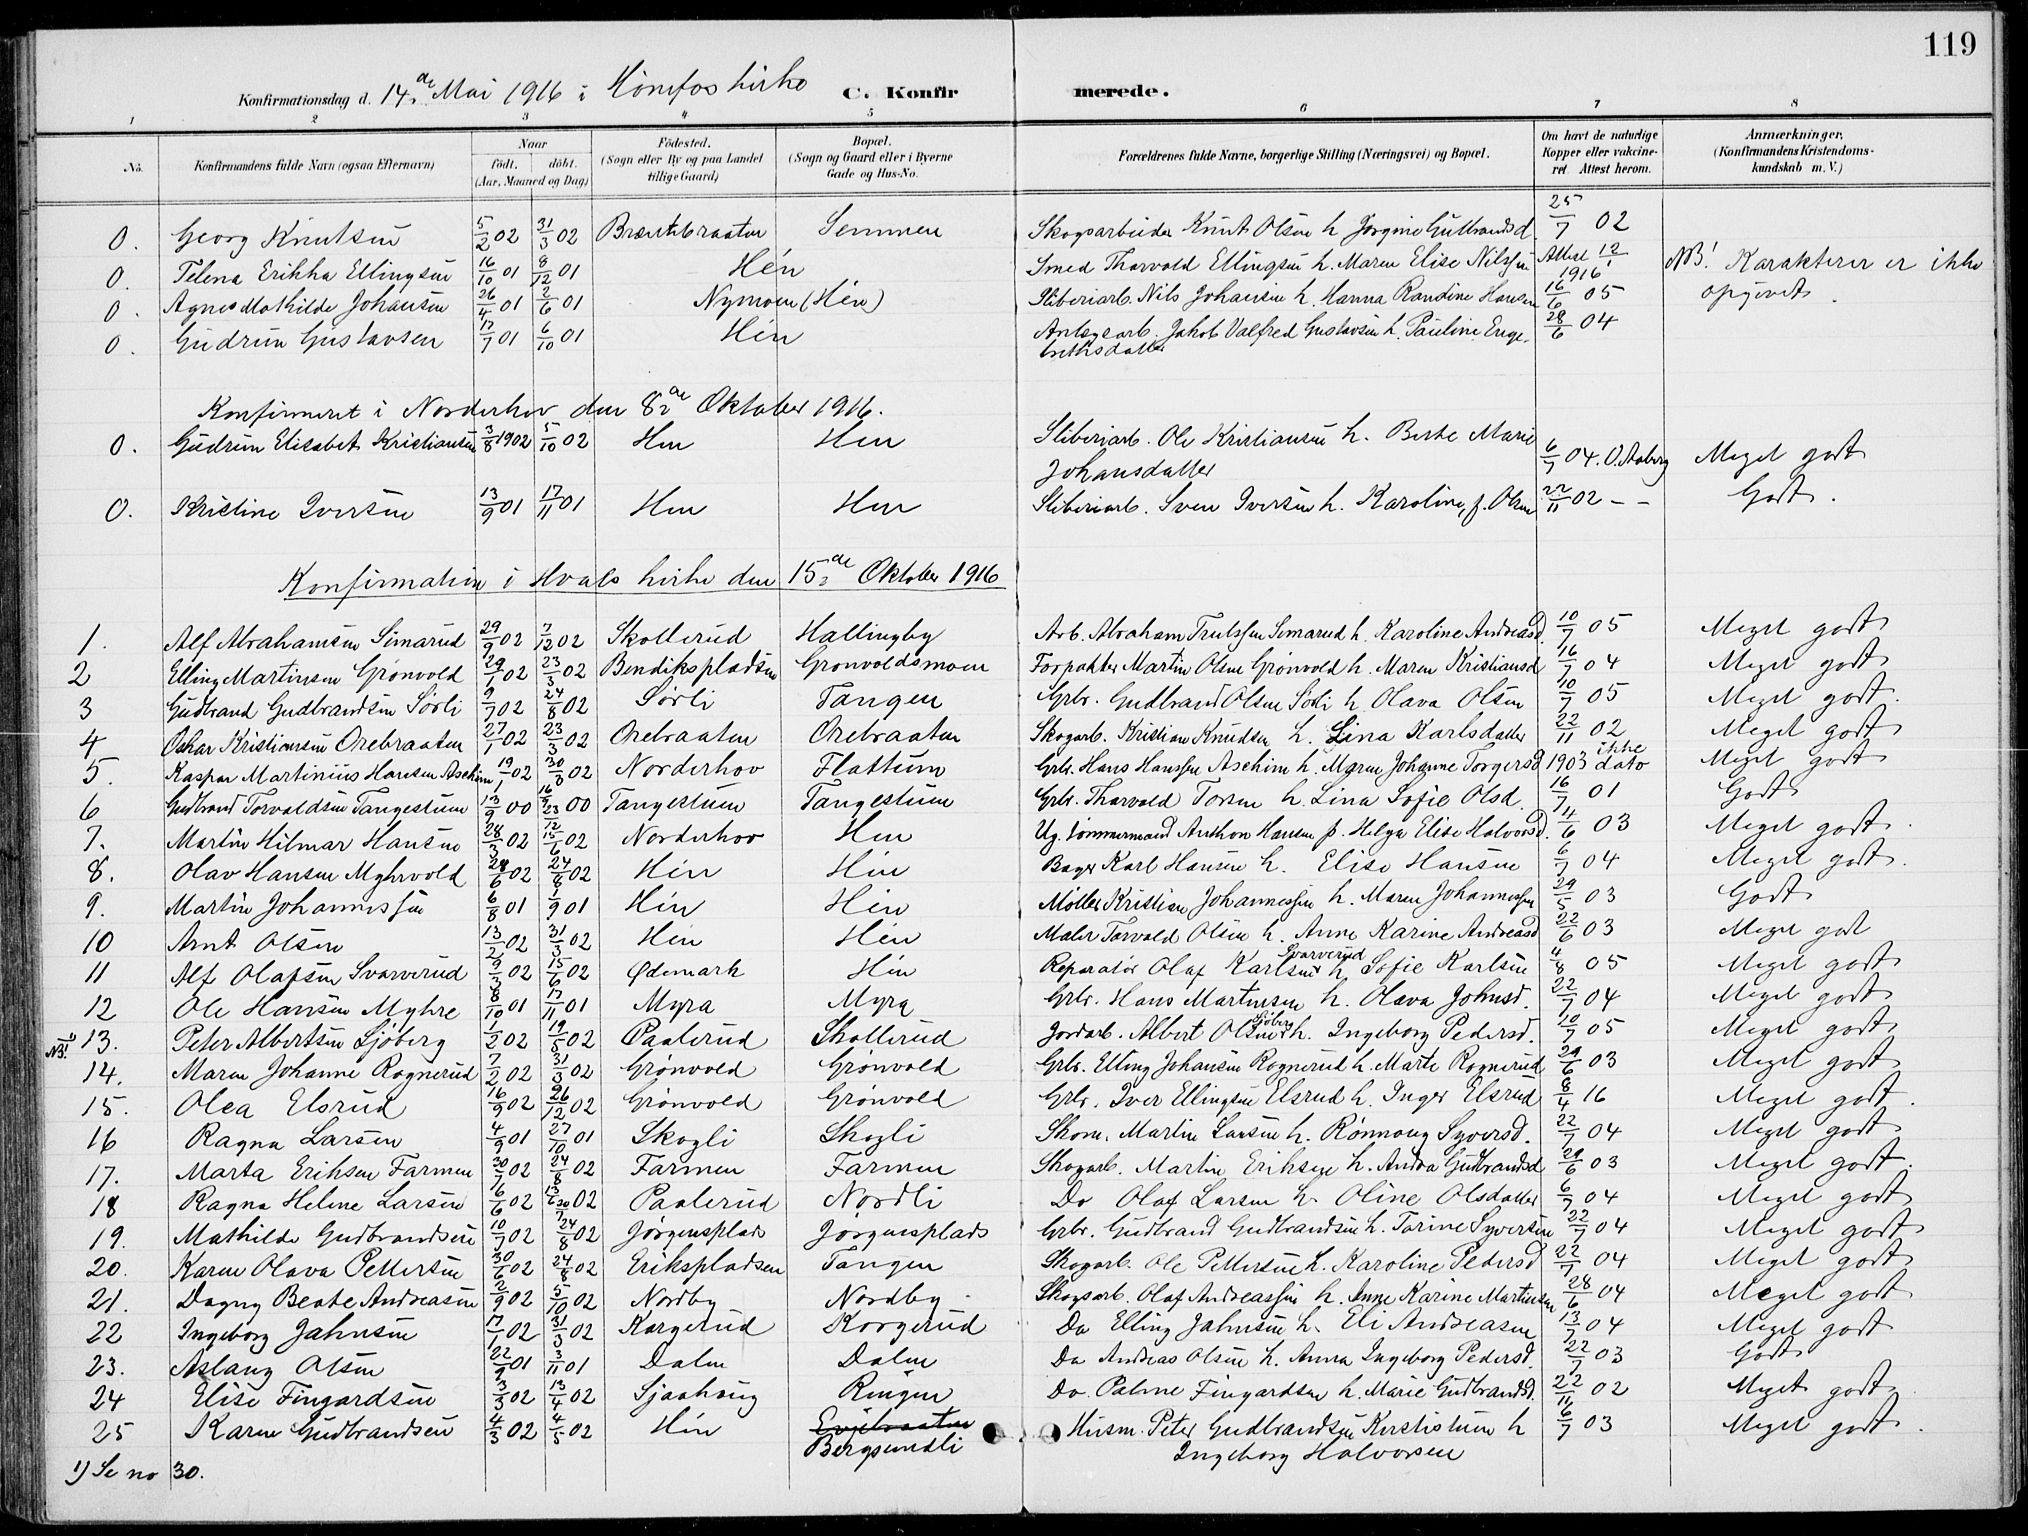 119
Konfirmationsdag d. 14.de Mai 1916 i Hønefos kirke C. Konfirmerede.
1 2 3 4 5 6 7 8
No. Konfirmandens fulde Navn (ogsaa Efternavn) Naar født. døbt. (Aar, Maaned og Dag.) Fødested. (Sogn eller By og paa Landet tillige Gaard.) Bopæl. (Sogn og Gaard eller i Byerne Gade og Hus-No. Forældrenes fulde Navne, borgerlige Stilling (Næringsvei) og Bopæl. Om havt de naturlige Kopper eller vakcineret. Attest herom. Anmærkninger, (Konfirmandens Kristendomskundskab m. V.)
0. Georg Knutsen 5/2 02 31/3 02 Brentebraaten Semmen Skogsarbeider Knut Olsen h. Jørgine Gulbrandsd. 25/7 02
0. Telena Erikka Ellingsen 16/10 01 8/12 01 Hén Smed Thorvald Ellingsen h. Maren Elise Nilssen Attest 12/1 1916 NB! Karakterer er ikke
0. Agnes Mathilde Johansen 26/4 01 2/6 01 Nymoen (Hén) Sliberiarb. Nils Johansen h. Hanna Randine Hansen 16/6 05 opgivet.
0. Gudrun Gustavsen 17/7 01 6/10 01 Hén Anlægsarb. Jakob Valfred Gustavsen h. Pauline Engebrethsdatter 28/6 04
Konfirmeret i Norderhov den 8de Oktober 1916.
0. Gudrun Elisabet Kristiansen 3/8 1902 5/10 02 Hen Hen Sliberiarb. Ole Kristiansen h. Berte Marie
Johansdatter 6/7 04. O. Aaberg Meget godt
0. Kristine Iversen 13/9 01 17/11 01 Hen Hen Sliberiarb. Sven Iversen h. Karoline, f. Olsen 22/11 02 - - Godt.
Konfirmation i Hvals kirke den 15de Oktober 1916
1. Alf Abrahamsen Simarud 29/9 02 7/12 02 Skollerud Hallingby Arb. Abraham Trulssen Semarud h. Karoline Andreasd. 10/7 05 Meget godt
2 Elling Martinsen Grønvold 29/1 02 23/3 02 Bendikspladsen Grønvoldsmoen Forpakter Martin Olsen Grønvold h. Maren Kristiansd 16/7 04 Meget godt
3 Gudbrand Gudbrandsen Sørli 9/7 02 24/8 02 Sørli Tangen Grbr. Gudbrand Olsen Sørli h. Olava Olsen 10/7 05 Meget godt.
4 Oskar Kristiansen Orebraaten 27/1 02 23/3 02 Orebraaten Orebraaten Skogarb. Kristian Knudsen h. Lina Karlsdatter 22/11 02 Meget godt
5. Kaspar Martinius Hansen Aschim 19/1 02 30/3 02 Norderhov Flattum Grbr. Hans Hanssen Aschim h. Maren Johanne Torgersd 1903 ikke dato Meget godt
6 Gudbrand Torvaldsen Tangestuen 13/9 00 16/9 23/12 00 Tangestuen Tangestuen Grbr. Thorvald Torsen h. Lina Sofie Olsd. 16/7 01 Godt
7. Martin Hilmar Hansen 28/3 02 15/6 02 Norderhov Hen Ug. tømmermand Anthon Hansen p. Helga Elise Halvorsd. 4/6 03 Meget godt.
8. Olav Hansen Myhrvold 28/6 02 24/8 02 Hén Hén Bager Karl Hansen h. Elise Hansen 6/7 04 Meget godt.
9. Martin Johannessen 6/8 01 1/9 01 Hén Hén Møller Kristian Johannessen h. Maren Johannessen 29/5 03 Godt
10 Arnt Olsen 13/2 02 31/3 02 Hén Hén Maler Torvald Olsen h. Anne Karine Andreasd 22/6 03 Meget godt
11 Alf Olafsen Svarverud 9/3 02 15/6 02 Ødemark Hén Reparatør Olaf Karlsen Svarverud h Sofie Karlsen 4/8 05 Meget godt
12 Ole Hansen Myhre 8/10 01 17/11 01 Myra Myra Grbr. Hans Martinsen h. Olava Johnsd. 22/7 04 Meget godt
NB! 1) 13. Peter Albertsen Sjøberg 1/2 02 19/5 02 Paalerud Skollerud Jordarb. Albert Olsen Sjøberg h. Ingeborg Pedersd. 10/7 05 Meget godt
14. Maren Johanne Rognerud 7/2 02 31/3 02 Grønvold Grønvold Grbr. Elling Johansen Rognerud h. Marte Rognerud 29/6 03 Meget godt
15. Olea Elsrud 16/9 02 26/12 02 Grønvold Grønvold Grbr. Iver Ellingsen Elsrud h. Inger Elsrud 8/4 16 Meget godt.
16 Ragna Larsen 4/9 01 27/10 01 Skogli Skogli Skom. Martin Larsen h. Rønnaug Syversd. 22/7 04 Meget godt
17. Marta Eriksen Farmen 30/7 02 24/8 02 Farmen Farmen Skogarb. Martin Eriksen h. Andra Gudbrandsd 29/6 03 Meget godt.
18 Ragna Helene Larsen 16/6 02 13/6 20/7 02 Paalerud Nordli Do Olaf Larsen h. Oline Olsdatter 6/7 04 Meget godt
19. Mathilde Gudbrandsen 10/7 02 24/8 02 Jørgensplads Jørgensplads Grbr. Gudbrand Gudbrandsen h. Torine Syversen 22/7 04 Meget godt
20. Karen Olava Pettersen 30/6 02 24/8 02 Erikspladsen Tangen Skogarb. Ole Pettersen h. Karoline Pedersd 22/7 04 Meget godt
21. Dagny Beate Andreasen 2/9 02 5/10 02 Nordby Nordby Skogsarb. Olaf Andreassen h. Anne Karine Martinsen 28/6 04 Meget godt
22 Ingeborg Jahnsen 17/1 02 31/3 02 Korgerud Korgerud Do Elling Jahnsen h. Eli Andreasen 13/7 04 Meget godt
23. Aslaug Olsen 22/9 01 3/11 01 Dalen Dalen Do Andreas Olsen h. Anna Ingeborg Pedersd. 22/7 03 Godt
24 Elise Fingardsen 3/3 02 13/4 02 Sjaahaug Ringen Do. Palme Fingardsen h. Marie Gudbrandsd. 22/11 02 Meget godt.
25 Karen Gudbrandsen 4/3 02 4/5 02 Hén Evjebraaten Husm. Peter Gudbrandsen Kerstistuen h 6/7 03 Meget godt.
Bergsundli Ingeborg Halvorsen
1) Se no 30.